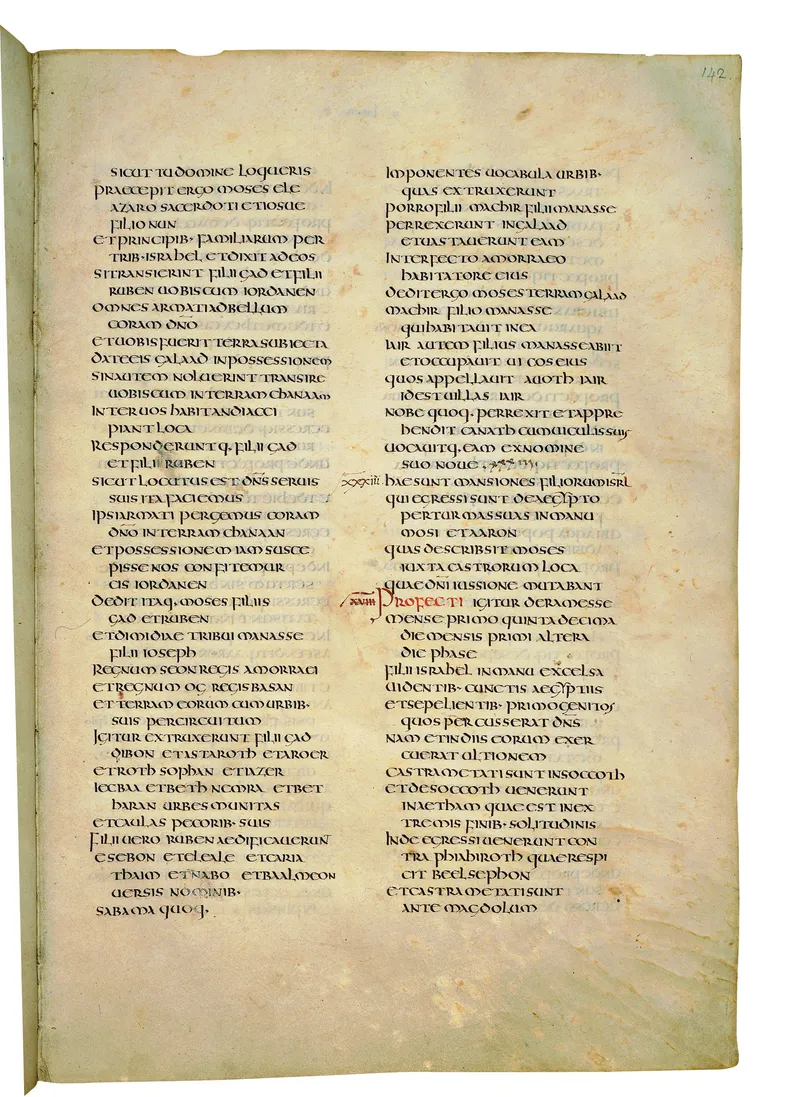 142
SICUT TU DOMINE LOQUERIS
PRAECEPIT ERGO MOSES ELE
AZARO SACERDOTI ET IOSUE
FILIO NUN
ET PRINCIPIB· FAMILIARUM PER
TRIB· ISRAHEL ET DIXIT AD EOS
SI TRANSIERINT FILII GAD ET FILII
RUBEN UOBISCUM IORDANEN
OMNES ARMATI AD BELLUM
CORAM DNO
ET UOBIS FUERIT TERRA SUBIECTA
DATE EIS GALAAD IN POSSESSIONEM
SIN AUTEM NOLUERINT TRANSIRE
UOBISCUM IN TERRAM CHANAAN
INTER UOS HABITANDI ACCI
PIANT LOCA
RESPONDERUNTQ· FILII GAD
ET FILII RUBEN
SICUT LOCUTUS EST DNS SERUIS
SUIS ITA FACIEMUS
IPSI ARMATI PERGEMUS CORAM
DNO IN TERRAM CHANAAN
ET POSSESSIONEM IAM SUSCE
PISSE NOS CONFITEMUR
CIS IORDANEN
DEDIT ITAQ· MOSES FILIIS
GAD ET RUBEN
ET DIMIDIAE TRIBUI MANASSE
FILII IOSEPH
REGNUM SEON REGIS AMORRAEI
ET REGNUM OG REGIS BASAN
ET TERRAM EORUM CUM URBIB·
SUIS PER CIRCUITUM
IGITUR EXTRUXERUNT FILII GAD
DIBON ET ASTAROTH ET AROER
ET ROTH SOPHAN ET IAZER
IECBAA ET BETH NEMRA ET BET
HARAN URBES MUNITAS
ET CAULAS PECORIB· SUIS
FILII UERO RUBEN AEDIFICAUERUNT
ESEBON ET ELEALE ET CARIA
THAIM ET NABO ET BAALMEON
UERSIS NOMINIB·
SABAMA QUOQ·
IMPONENTES UOCABULA URBIB·
QUAS EXTRUXERUNT
PORRO FILII MACHIR FILII MANASSE
PERREXERUNT IN GALAAD
ET UASTAUERUNT EAM
INTERFECTO AMORRAEO
HABITATORE EIUS
DEDIT ERGO MOSES TERRAM GALAAD
MACHIR FILIO MANASSE
QUI HABITAUIT IN EA
IAIR AUTEM FILIUS MANASSE ABIIT
ET OCCUPAUIT UICOS EIUS
QUOS APPELLAUIT AUOTH IAIR
ID EST UILLAS IAIR
NOBE QUOQ· PERREXIT ET APPRE
HENDIT CANATH CUM UICULIS SUIS
UOCAUITQ· EAM EX NOMINE
SUO NOUE
XXXIII· HAE SUNT MANSIONES FILIORUM ISRL
QUI EGRESSI SUNT DE AEGYPTO
PER TURMAS SUAS IN MANU
MOSI ET AARON
QUAS DESCRIBSIT MOSES
IUXTA CASTRORUM LOCA
QUAE DNI IUSSIONE MUTABANT
PROFECTI IGITUR DE RAMESSE
MENSE PRIMO QUINTA DECIMA
DIE MENSIS PRIMI ALTERA
DIE PHASE
FILII ISRAHEL IN MANU EXCELSA
UIDENTIB· CUNCTIS AEGYPTIIS
ET SEPELIENTIB· PRIMOGENITOS
QUOS PERCUSSERAT DNS
NAM ET IN DIIS EORUM EXER
CUERAT ULTIONEM
CASTRAMETATI SUNT IN SOCCOTH
ET DE SOCCOTH UENERUNT
IN AETHAM QUAE EST IN EX
TREMIS FINIB· SOLITUDINIS
INDE EGRESSI UENERUNT CON
TRA PHIAHIROTH QUAE RESPI
CIT BEELSEPHON
ET CASTRAMETATI SUNT
ANTE MAGDOLUM